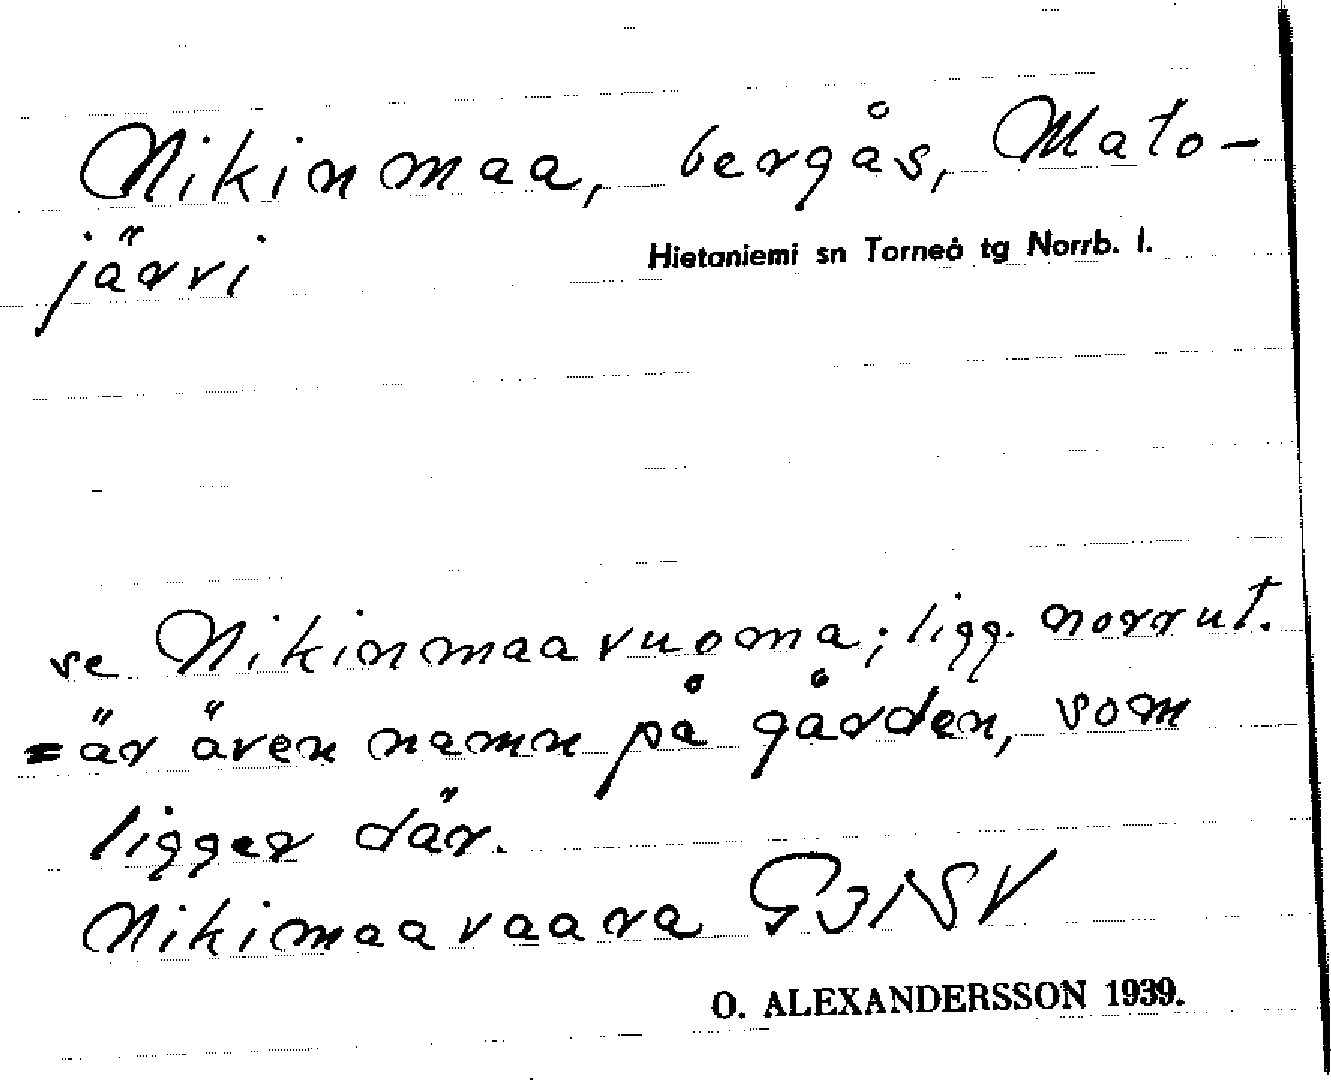 Nikinmaa, bergås, Mato-
järvi
Hietaniemi sn Torneå tg Norrb. l.
se Nikinmaavuoma; ligg. norrut.
=är även namn på gården, som
ligger där.
Nikimaavaara
O. ALEXANDERSSON 1939.